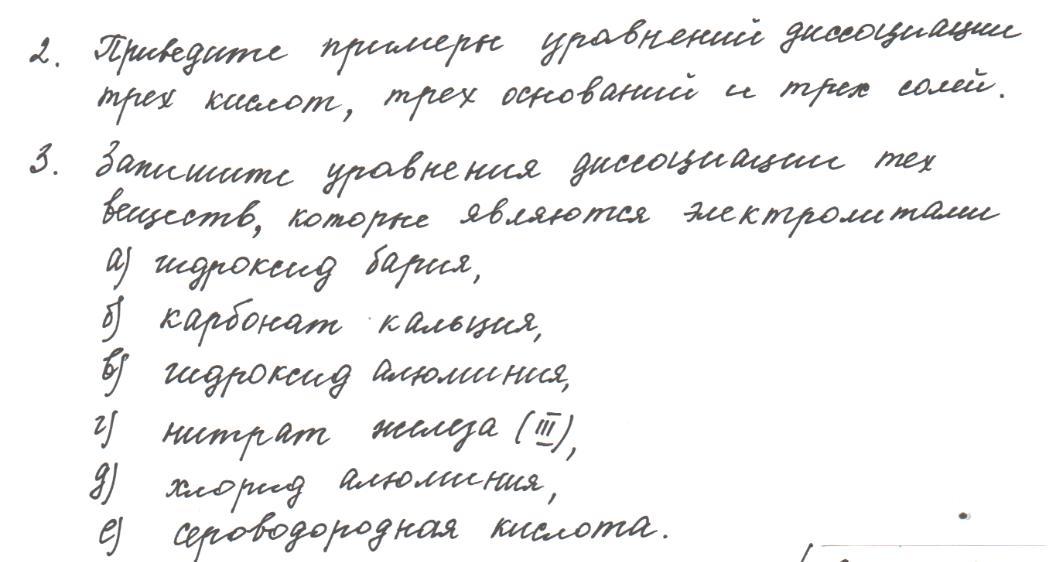 2. Приведите примеры уравнений диссоциации
трех кислот, трех оснований и трех солей.
3. Запишите уравнения диссоциации тех
веществ, которые являются электролитами
а) гидроксид бария,
б) карбонат кальция,
в) гидроксид алюминия,
г) нитрат железа (III),
д) хлорид алюминия,
е) сероводородная кислота.